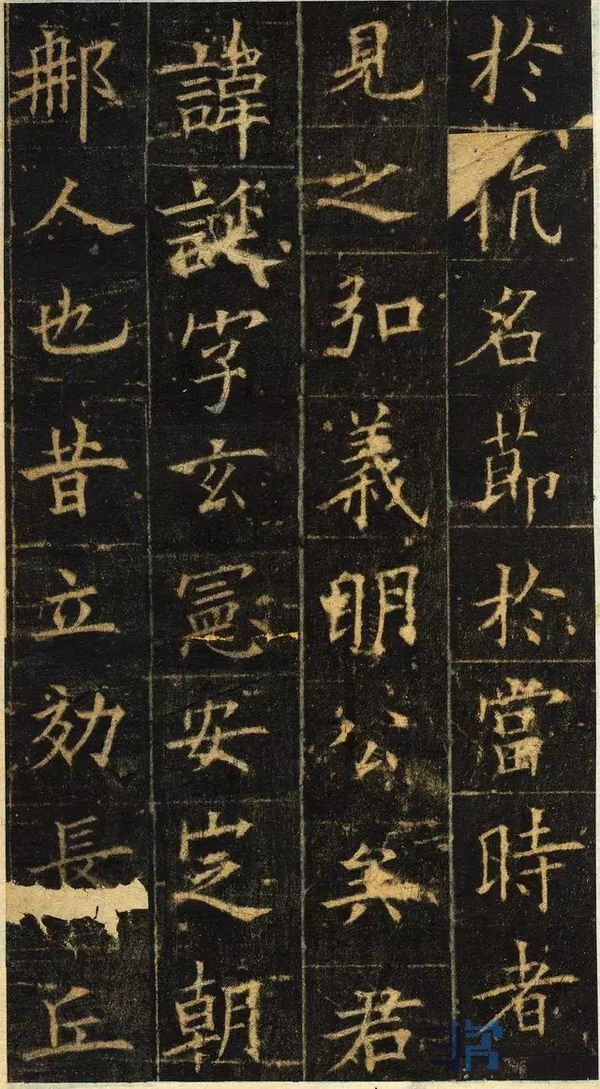 於抗名節於當時者
見之弘義明公矣君
諱誕字玄憲安定朝
那人也昔立効長丘